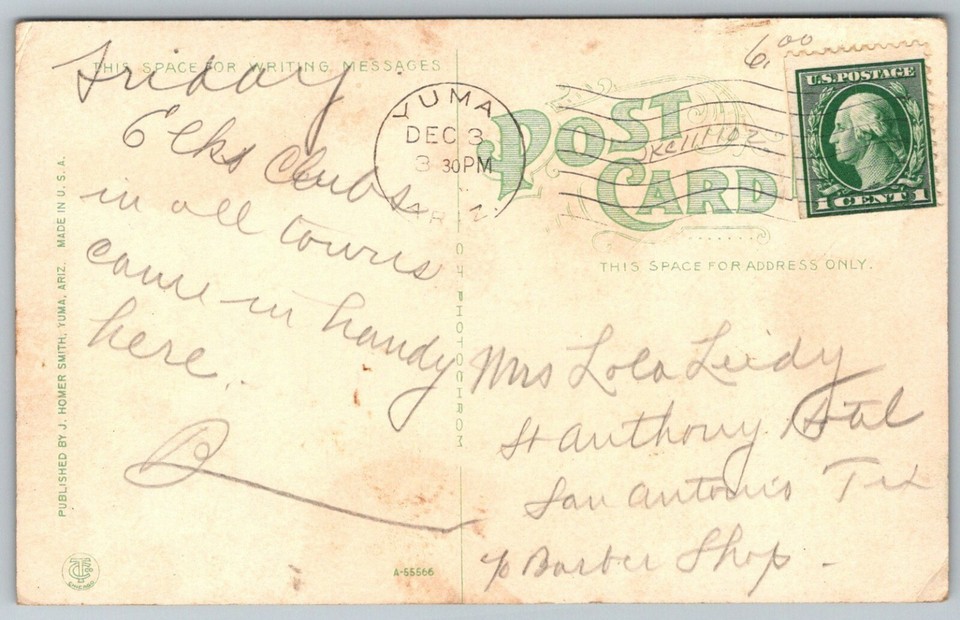 THIS SPACE FOR WRITING MESSAGES
Friday
Elks Clubs
in all towns
come in handy
here..
PUBLISHED BY J. HOMER SMITH, YUMA, ARIZ. MADE IN U. S. A.
CHICAGO
A-55566
PHOTOCHROM
YUMA
DEC 3
3 30PM
ARIZ.
POST CARD
6.00
U.S. POSTAGE
1 CENT 1
THIS SPACE FOR ADDRESS ONLY.
Mrs Lola Leidy
St Anthony Hotel
San Antonio Tex
c/o Barber Shop.